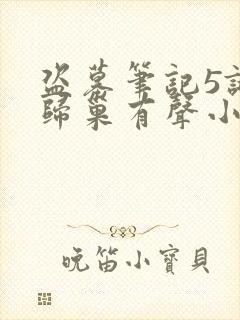 盗墓筆記5
歸巢有聲小
晚笛小寶貝